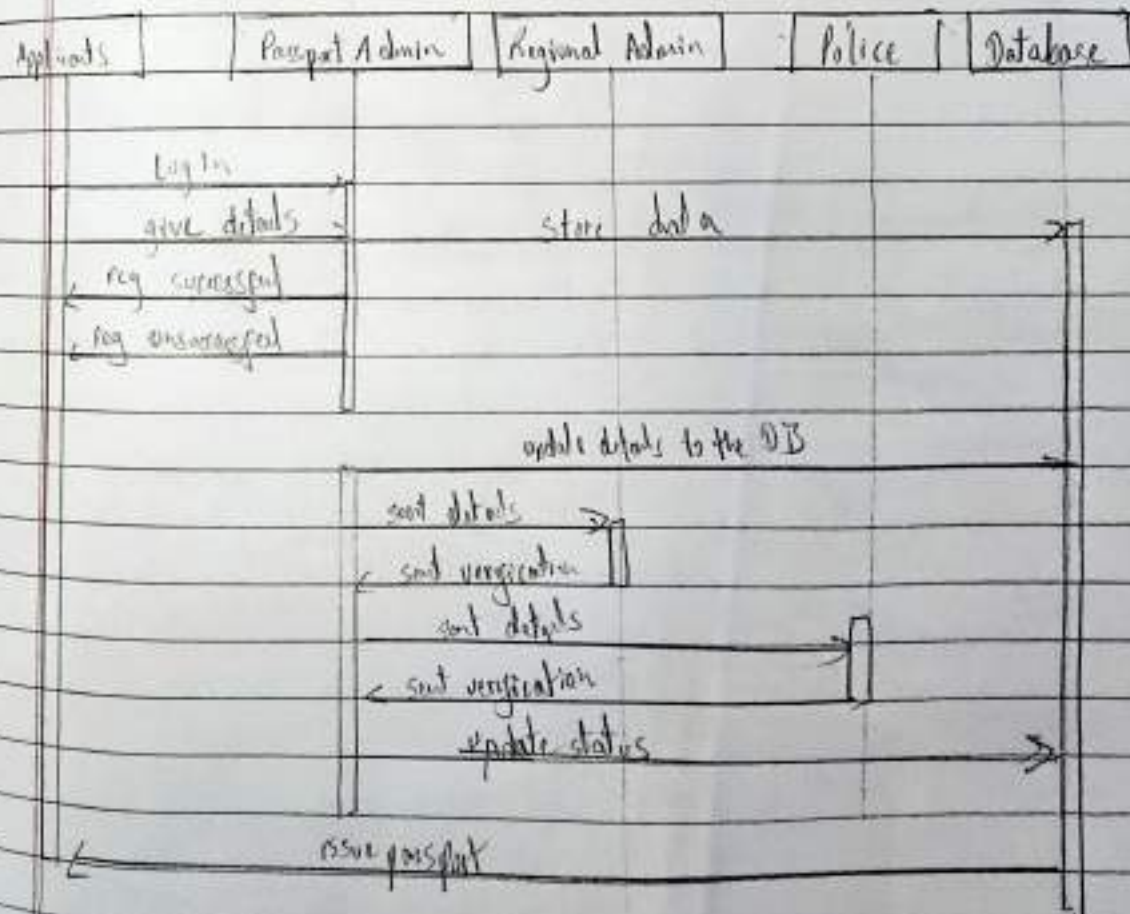 Applicants Passport Admin Regional Admin Police Database
Log In
give details store data
reg successful
reg unsuccessful
update details to the DB
sent details
sent verification
sent details
sent verification
update status
issue passport